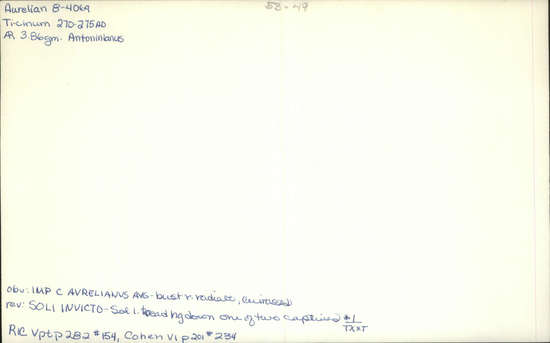 Aurelian B-4069
53-49
Ticinum 270-275AD
AR 3.86gm. Antoninianus
obv: IMP C AVRELIANVS AVG - bust r. radiate, cuirassed
rev: SOLI INVICTO - Sol l. ding down one of two captives *1
TXXT
RIC V pt p 282 #154, Cohen VI p 201 #234